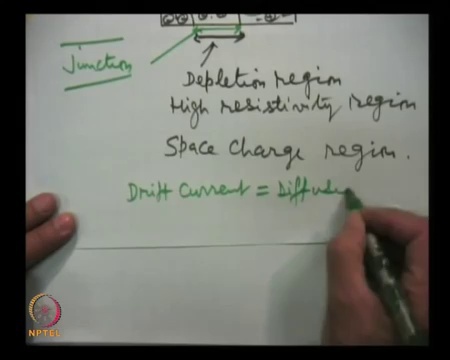 Junction
Depletion region
High resistivity region
Space Charge region.
Drift Current = Diffu
NPTEL